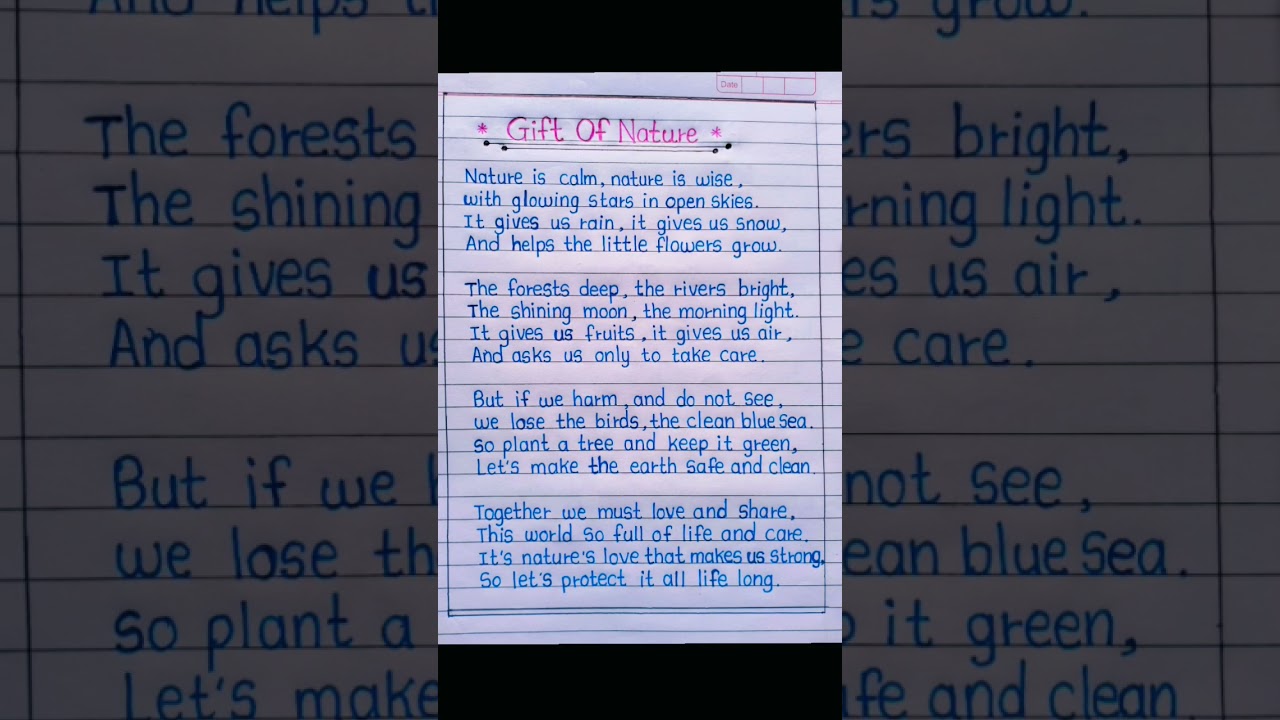 Date
* Gift Of Nature *
Nature is calm, nature is wise,
with glowing stars in open skies.
It gives us rain, it gives us snow,
And helps the little flowers grow.
The forests deep, the rivers bright,
The shining moon, the morning light.
It gives us fruits, it gives us air,
And asks us only to take care.
But if we harm, and do not see,
we lose the birds, the clean blue sea.
So plant a tree and keep it green,
Let's make the earth safe and clean.
Together we must love and share,
This world so full of life and care.
It's nature's love that makes us strong,
So let's protect it all life long.